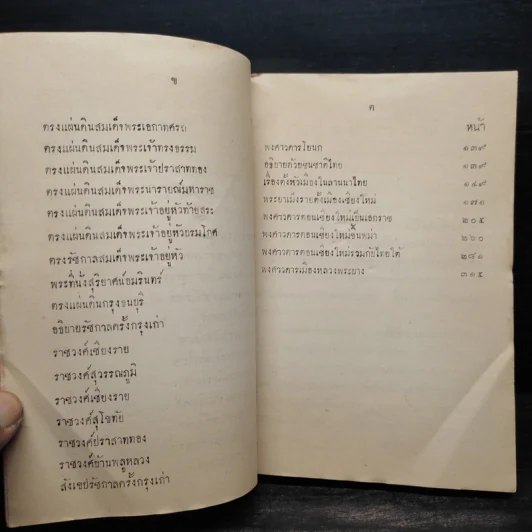 ข
ตรงแผ่นดินสมเด็จพระเอกาทศรถ
ตรงแผ่นดินสมเด็จพระเจ้าทรงธรรม
ตรงแผ่นดินสมเด็จพระเจ้าปราสาททอง
ตรงแผ่นดินสมเด็จพระนารายณ์มหาราช
ตรงแผ่นดินสมเด็จพระเจ้าอยู่หัวท้ายสระ
ตรงแผ่นดินสมเด็จพระเจ้าอยู่หัวบรมโกศ
ตรงรัชกาลสมเด็จพระเจ้าอยู่หัว
พระที่นั่งสุริยาศน์อมรินทร์
ตรงแผ่นดินกรุงธนบุรี
อธิบายรัชกาลครั้งกรุงเก่า
ราชวงศ์เชียงราย
ราชวงศ์สุวรรณภูมิ
ราชวงศ์เชียงราย
ราชวงศ์สุโขทัย
ราชวงศ์ปราสาททอง
ราชวงศ์บ้านพลูหลวง
สังเขปรัชกาลครั้งกรุงเก่า
ค
หน้า
พงศาวดารโยนก ๑๓๙
อธิบายด้วยชนชาติไทย ๑๓๙
เรื่องตั้งหัวเมืองในลานนาไทย ๑๔๙
พระยาเม็งรายตั้งเมืองเชียงใหม่ ๑๗๑
พงศาวดารตอนเชียงใหม่เป็นเอกราช ๒๐๕
พงศาวดารตอนเชียงใหม่ขึ้นพม่า ๒๖๐
พงศาวดารตอนเชียงใหม่รวมกับไทยใต้ ๒๘๑
พงศาวดารเมืองหลวงพระบาง ๓๑๕